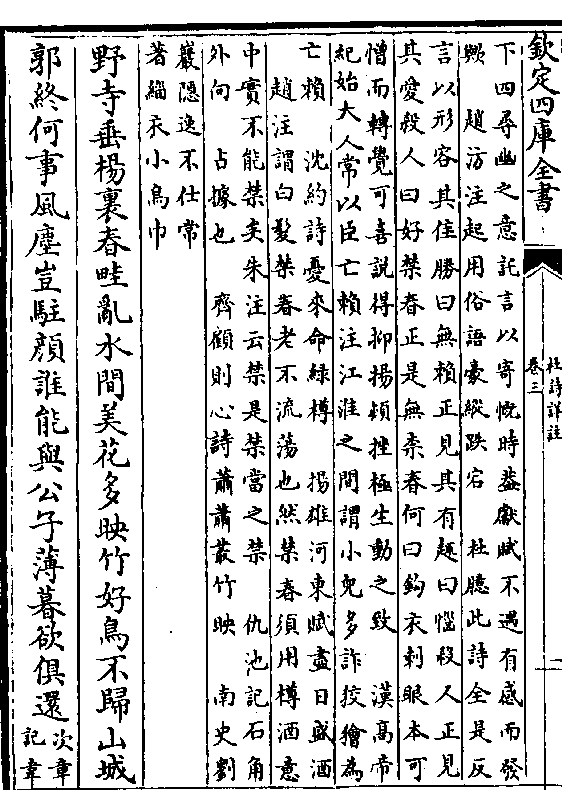 欽定四庫全書
杜詩詳註
卷三
下四尋幽之意託言以寄慨時蓋獻賦不遇有感而發
歟　趙汸注起用俗語豪縱跌宕　杜臆此詩全是反
言以形容其佳勝曰無賴正見其有趣曰惱殺人正見
其愛殺人曰好禁春正是無柰春何曰鈎衣刺眼本可
憎而轉覺可喜說得抑揚頓挫極生動之致　漢高帝
紀始大人常以臣亡賴注江淮之間謂小兒多詐狡獪為
亡賴　沈約詩憂來命綠樽　揚雄河東賦盡日盛酒
趙注謂白髪禁春老不流蕩也然禁春須用樽酒意
中實不能禁矣朱注云禁是禁當之禁　仇池記石角
外向　占據也　齊顧則心詩蕭蕭叢竹映　南史劉
巖隱逸不仕常
著緇衣小烏巾
野寺垂楊裏春畦亂水間美花多映竹好鳥不歸山城
郭終何事風塵豈駐顔誰能與公子薄暮欲俱還
次章
記韋